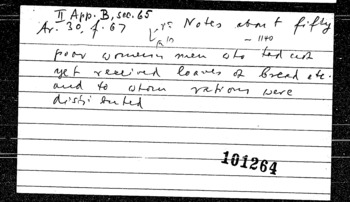 II App. B, sec. 65
Ar. 30, f. 67 Notes about fifty
- 1140
poor women men who had not
yet received loaves of bread etc.
and to whom rations were
distributed
101264